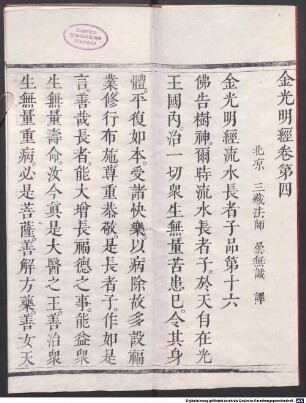 金光明經卷第四
北京 三藏法師 曇無讖 譯
金光明經流水長者子品第十六
佛告樹神。爾時流水長者子。於天自在光
王國內。治一切衆生無量苦患巳。令其身
體。平復如本。受諸快樂。以病除故。多設福
業。修行布施。尊重恭敬。是長者子。作如是
言。善哉長者。能大增長福德之事。能益衆
生無量壽命。汝今真是大醫之王。善治衆
生無量重病。必是菩薩。善解方藥。善女天。